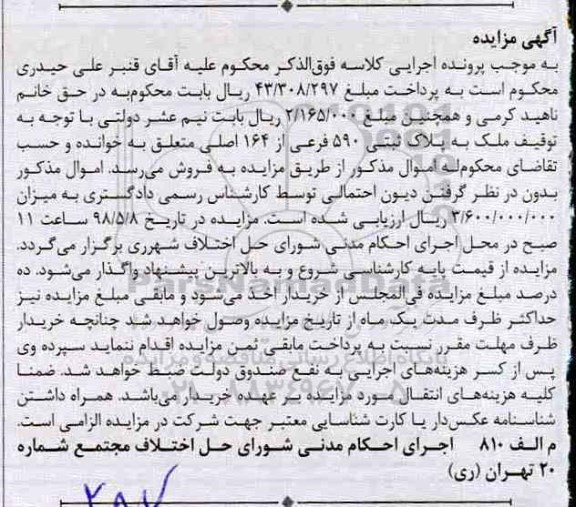 آگهی مزایده
به موجب پرونده اجرایی کلاسه فوق‌الذکر محکوم علیه آقای قنبر علی حیدری
محکوم است به پرداخت مبلغ ۴۳/۳۰۸/۲۹۷ ریال بابت محکوم‌به در حق خانم
ناهید کرمی و همچنین مبلغ ۲/۱۶۵/۰۰۰ ریال بابت نیم عشر دولتی با توجه به
توقیف ملک به پلاک ثبتی ۵۹۰ فرعی از ۱۶۴ اصلی متعلق به خوانده و حسب
تقاضای محکوم‌له اموال مذکور از طریق مزایده به فروش می‌رسد. اموال مذکور
بدون در نظر گرفتن دیون احتمالی توسط کارشناس رسمی دادگستری به میزان
۳/۶۰۰/۰۰۰/۰۰۰ ریال ارزیابی شده است. مزایده در تاریخ ۹۸/۵/۸ ساعت ۱۱
صبح در محل اجرای احکام مدنی شورای حل اختلاف شهرری برگزار می‌گردد.
مزایده از قیمت پایه کارشناسی شروع و به بالاترین پیشنهاد واگذار می‌شود. ده
درصد مبلغ مزایده فی‌المجلس از خریدار اخذ می‌شود و مابقی مبلغ مزایده نیز
حداکثر ظرف مدت یک ماه از تاریخ مزایده وصول خواهد شد چنانچه خریدار
ظرف مهلت مقرر نسبت به پرداخت مابقی ثمن مزایده اقدام ننماید سپرده وی
پس از کسر هزینه‌های اجرایی به نفع صندوق دولت ضبط خواهد شد. ضمنا
کلیه هزینه‌های انتقال مورد مزایده بر عهده خریدار می‌باشد. همراه داشتن
شناسنامه عکس‌دار یا کارت شناسایی معتبر جهت شرکت در مزایده الزامی است.
م الف ۸۱۰ اجرای احکام مدنی شورای حل اختلاف مجتمع شماره
۲۰ تهران (ری)